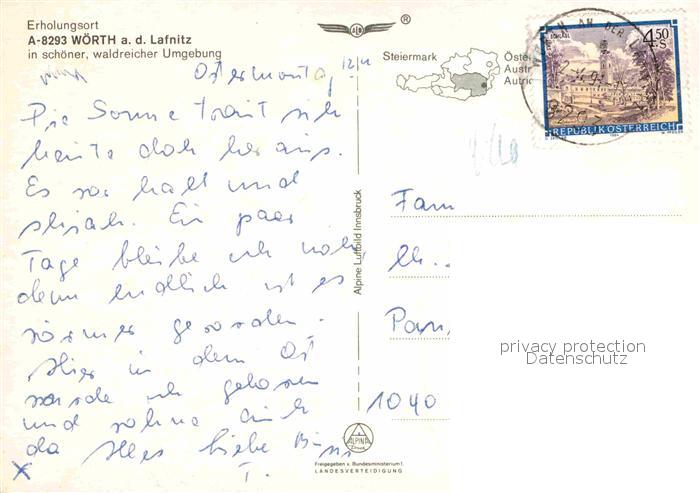 Erholungsort
A-8293 WÖRTH a. d. Lafnitz
in schöner, waldreicher Umgebung
Ostermontag 12/4
Die Sonne traut sich
heute doch heraus.
Es war kalt und
Ein paar
Tage bleibe ich noch,
denn endlich ist es
wärmer geworden.
Hier in dem Ort
wurde ich geboren
und wohne auch
da Alles liebe
T.
Alpine Luftbild Innsbruck
®
Steiermark
Öste
Austr
Autric
4.50
S
REPUBLIK ÖSTERREICH
Fam
1040
privacy protection
Datenschutz
ALPINA
Freigegeben v. Bundesministerium f.
LANDESVERTEIDIGUNG